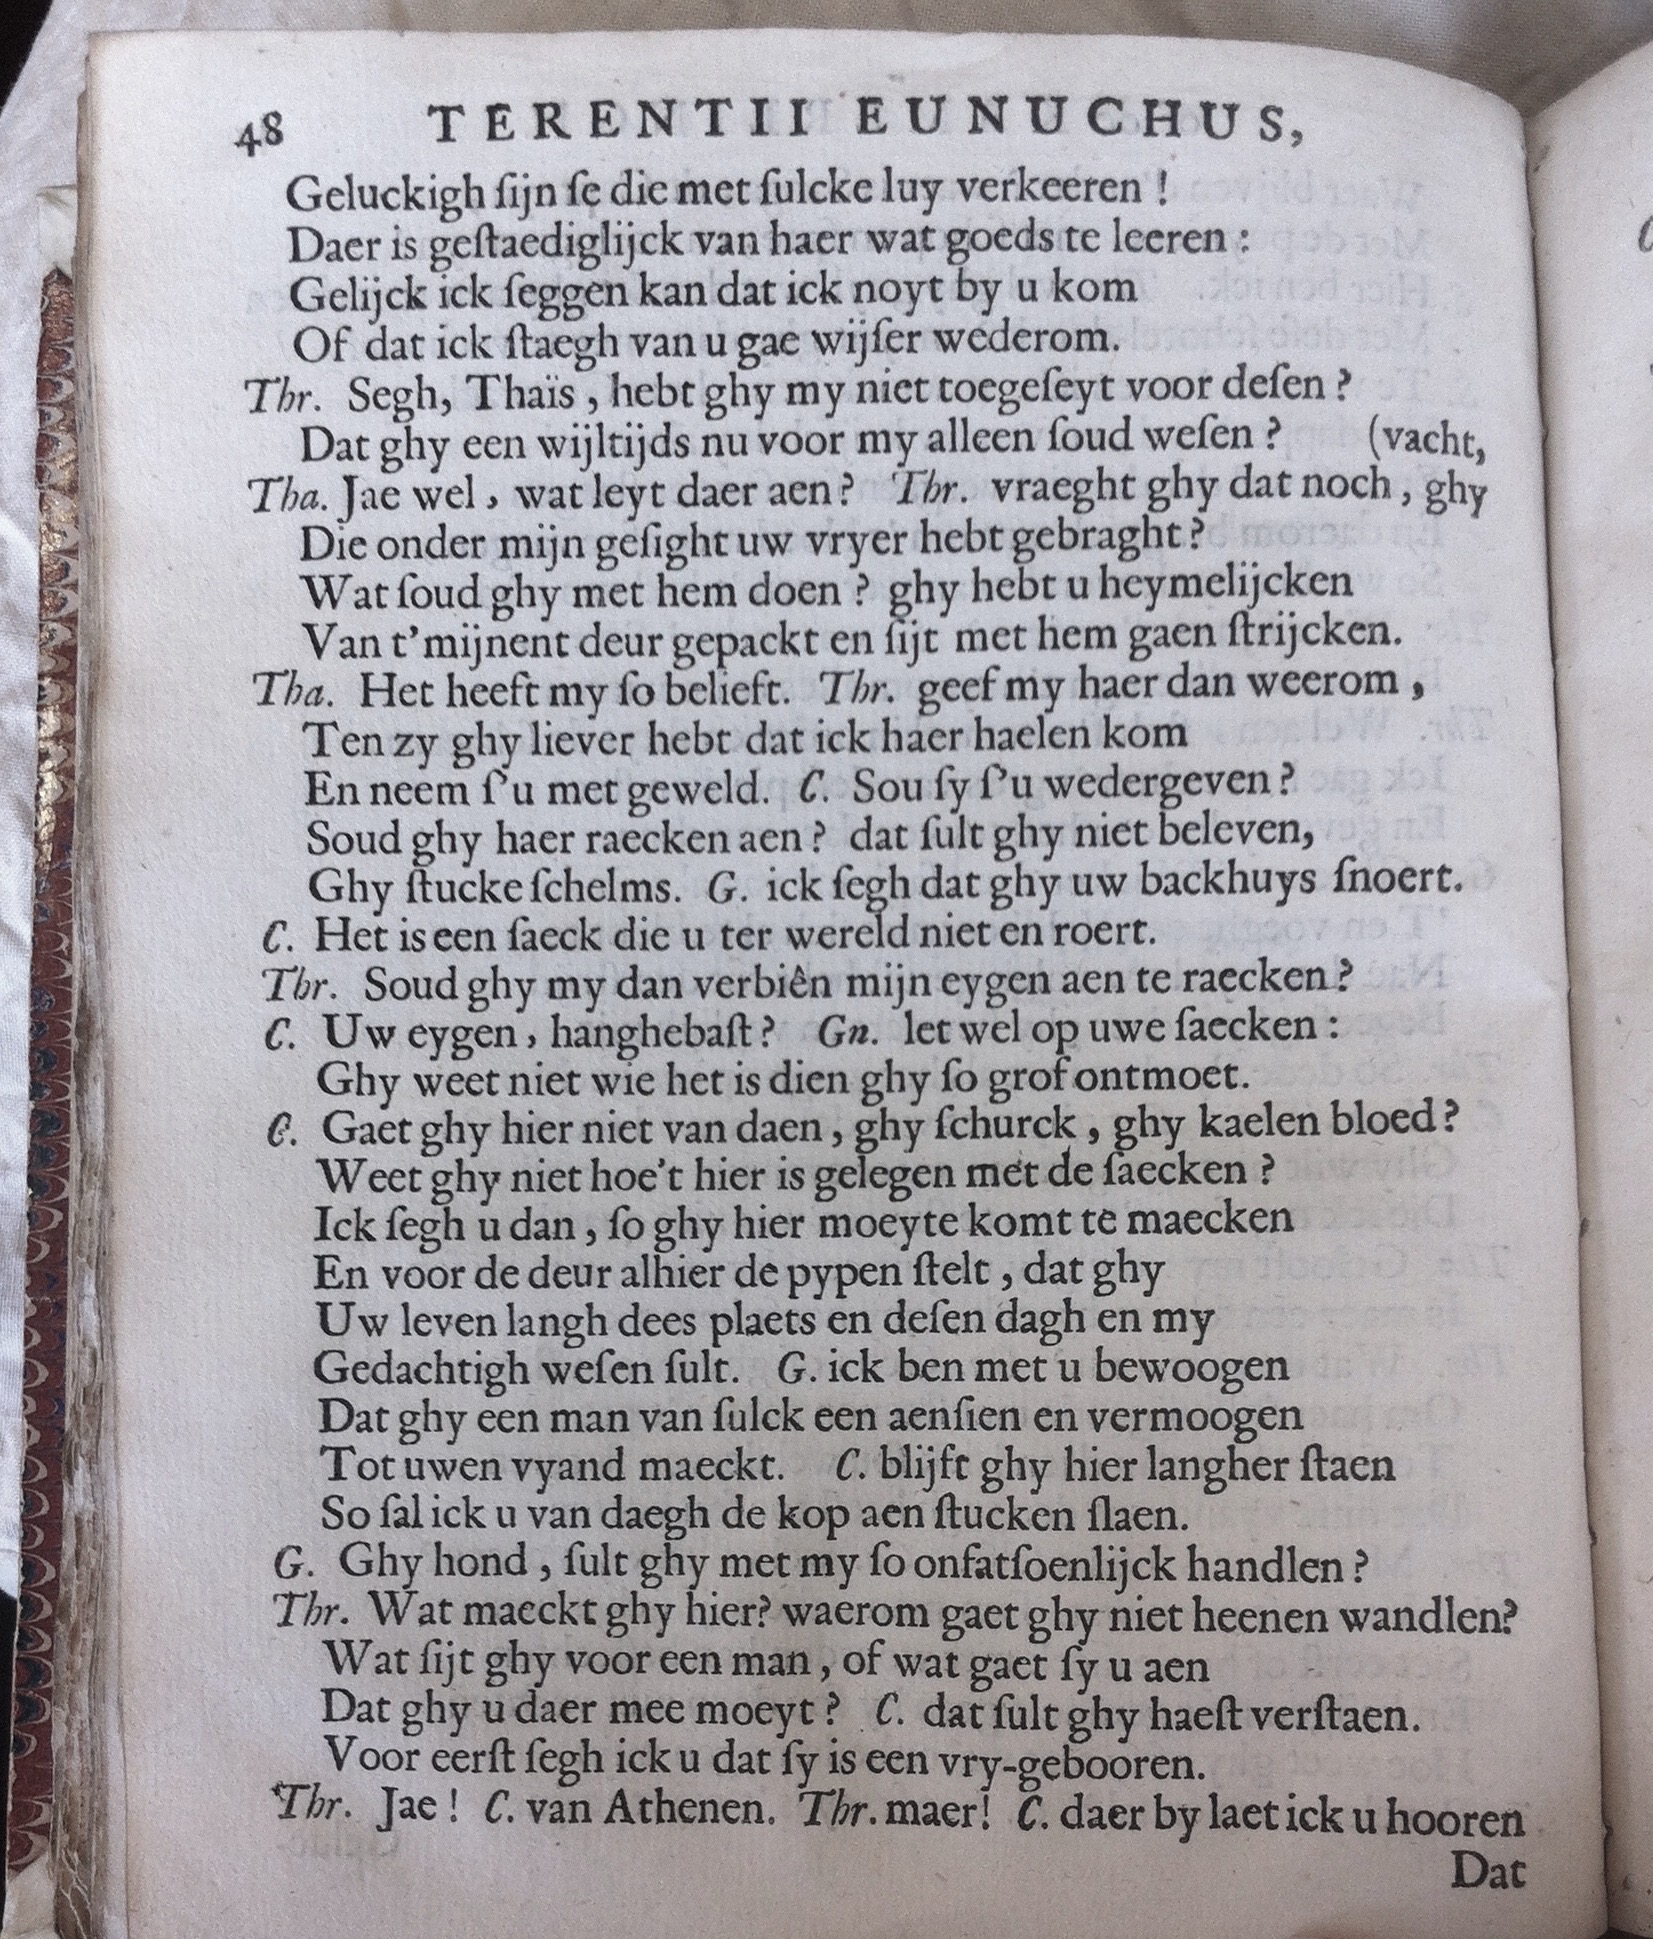 48 TERENTII EUNUCHUS,
Geluckigh ſijn ſe die met ſulcke luy verkeeren !
Daer is geſtaediglijck van haer wat goeds te leeren :
Gelijck ick ſeggen kan dat ick noyt by u kom
Of dat ick ſtaegh van u gae wijſer wederom.
Thr. Segh, Thaïs, hebt ghy my niet toegeſeyt voor deſen ?
Dat ghy een wijltijds nu voor my alleen ſoud weſen ? (vacht,
Tha. Jae wel, wat leyt daer aen ? Thr. vraeght ghy dat noch, ghy
Die onder mijn geſight uw vryer hebt gebraght ?
Wat ſoud ghy met hem doen ? ghy hebt u heymelijcken
Van t'mijnent deur gepackt en ſijt met hem gaen ſtrijcken.
Tha. Het heeft my ſo belieft. Thr. geef my haer dan weerom,
Ten zy ghy liever hebt dat ick haer haelen kom
En neem ſ'u met geweld. C. Sou ſy ſ'u wedergeven ?
Soud ghy haer raecken aen ? dat ſult ghy niet beleven,
Ghy ſtucke ſchelms. G. ick ſegh dat ghy uw backhuys ſnoert.
C. Het is een ſaeck die u ter wereld niet en roert.
Thr. Soud ghy my dan verbiên mijn eygen aen te raecken ?
C. Uw eygen, hanghebaſt ? Gn. let wel op uwe ſaecken :
Ghy weet niet wie het is dien ghy ſo grof ontmoet.
C. Gaet ghy hier niet van daen, ghy ſchurck, ghy kaelen bloed ?
Weet ghy niet hoe't hier is gelegen met de ſaecken ?
Ick ſegh u dan, ſo ghy hier moeyte komt te maecken
En voor de deur alhier de pypen ſtelt, dat ghy
Uw leven langh dees plaets en deſen dagh en my
Gedachtigh weſen ſult. G. ick ben met u bewoogen
Dat ghy een man van ſulck een aenſien en vermoogen
Tot uwen vyand maeckt. C. blijft ghy hier langher ſtaen
So ſal ick u van daegh de kop aen ſtucken ſlaen.
G. Ghy hond, ſult ghy met my ſo onfatſoenlijck handlen ?
Thr. Wat maeckt ghy hier? waerom gaet ghy niet heenen wandlen?
Wat ſijt ghy voor een man, of wat gaet ſy u aen
Dat ghy u daer mee moeyt ? C. dat ſult ghy haeſt verſtaen.
Voor eerſt ſegh ick u dat ſy is een vry-gebooren.
Thr. Jae ! C. van Athenen. Thr. maer! C. daer by laet ick u hooren
Dat